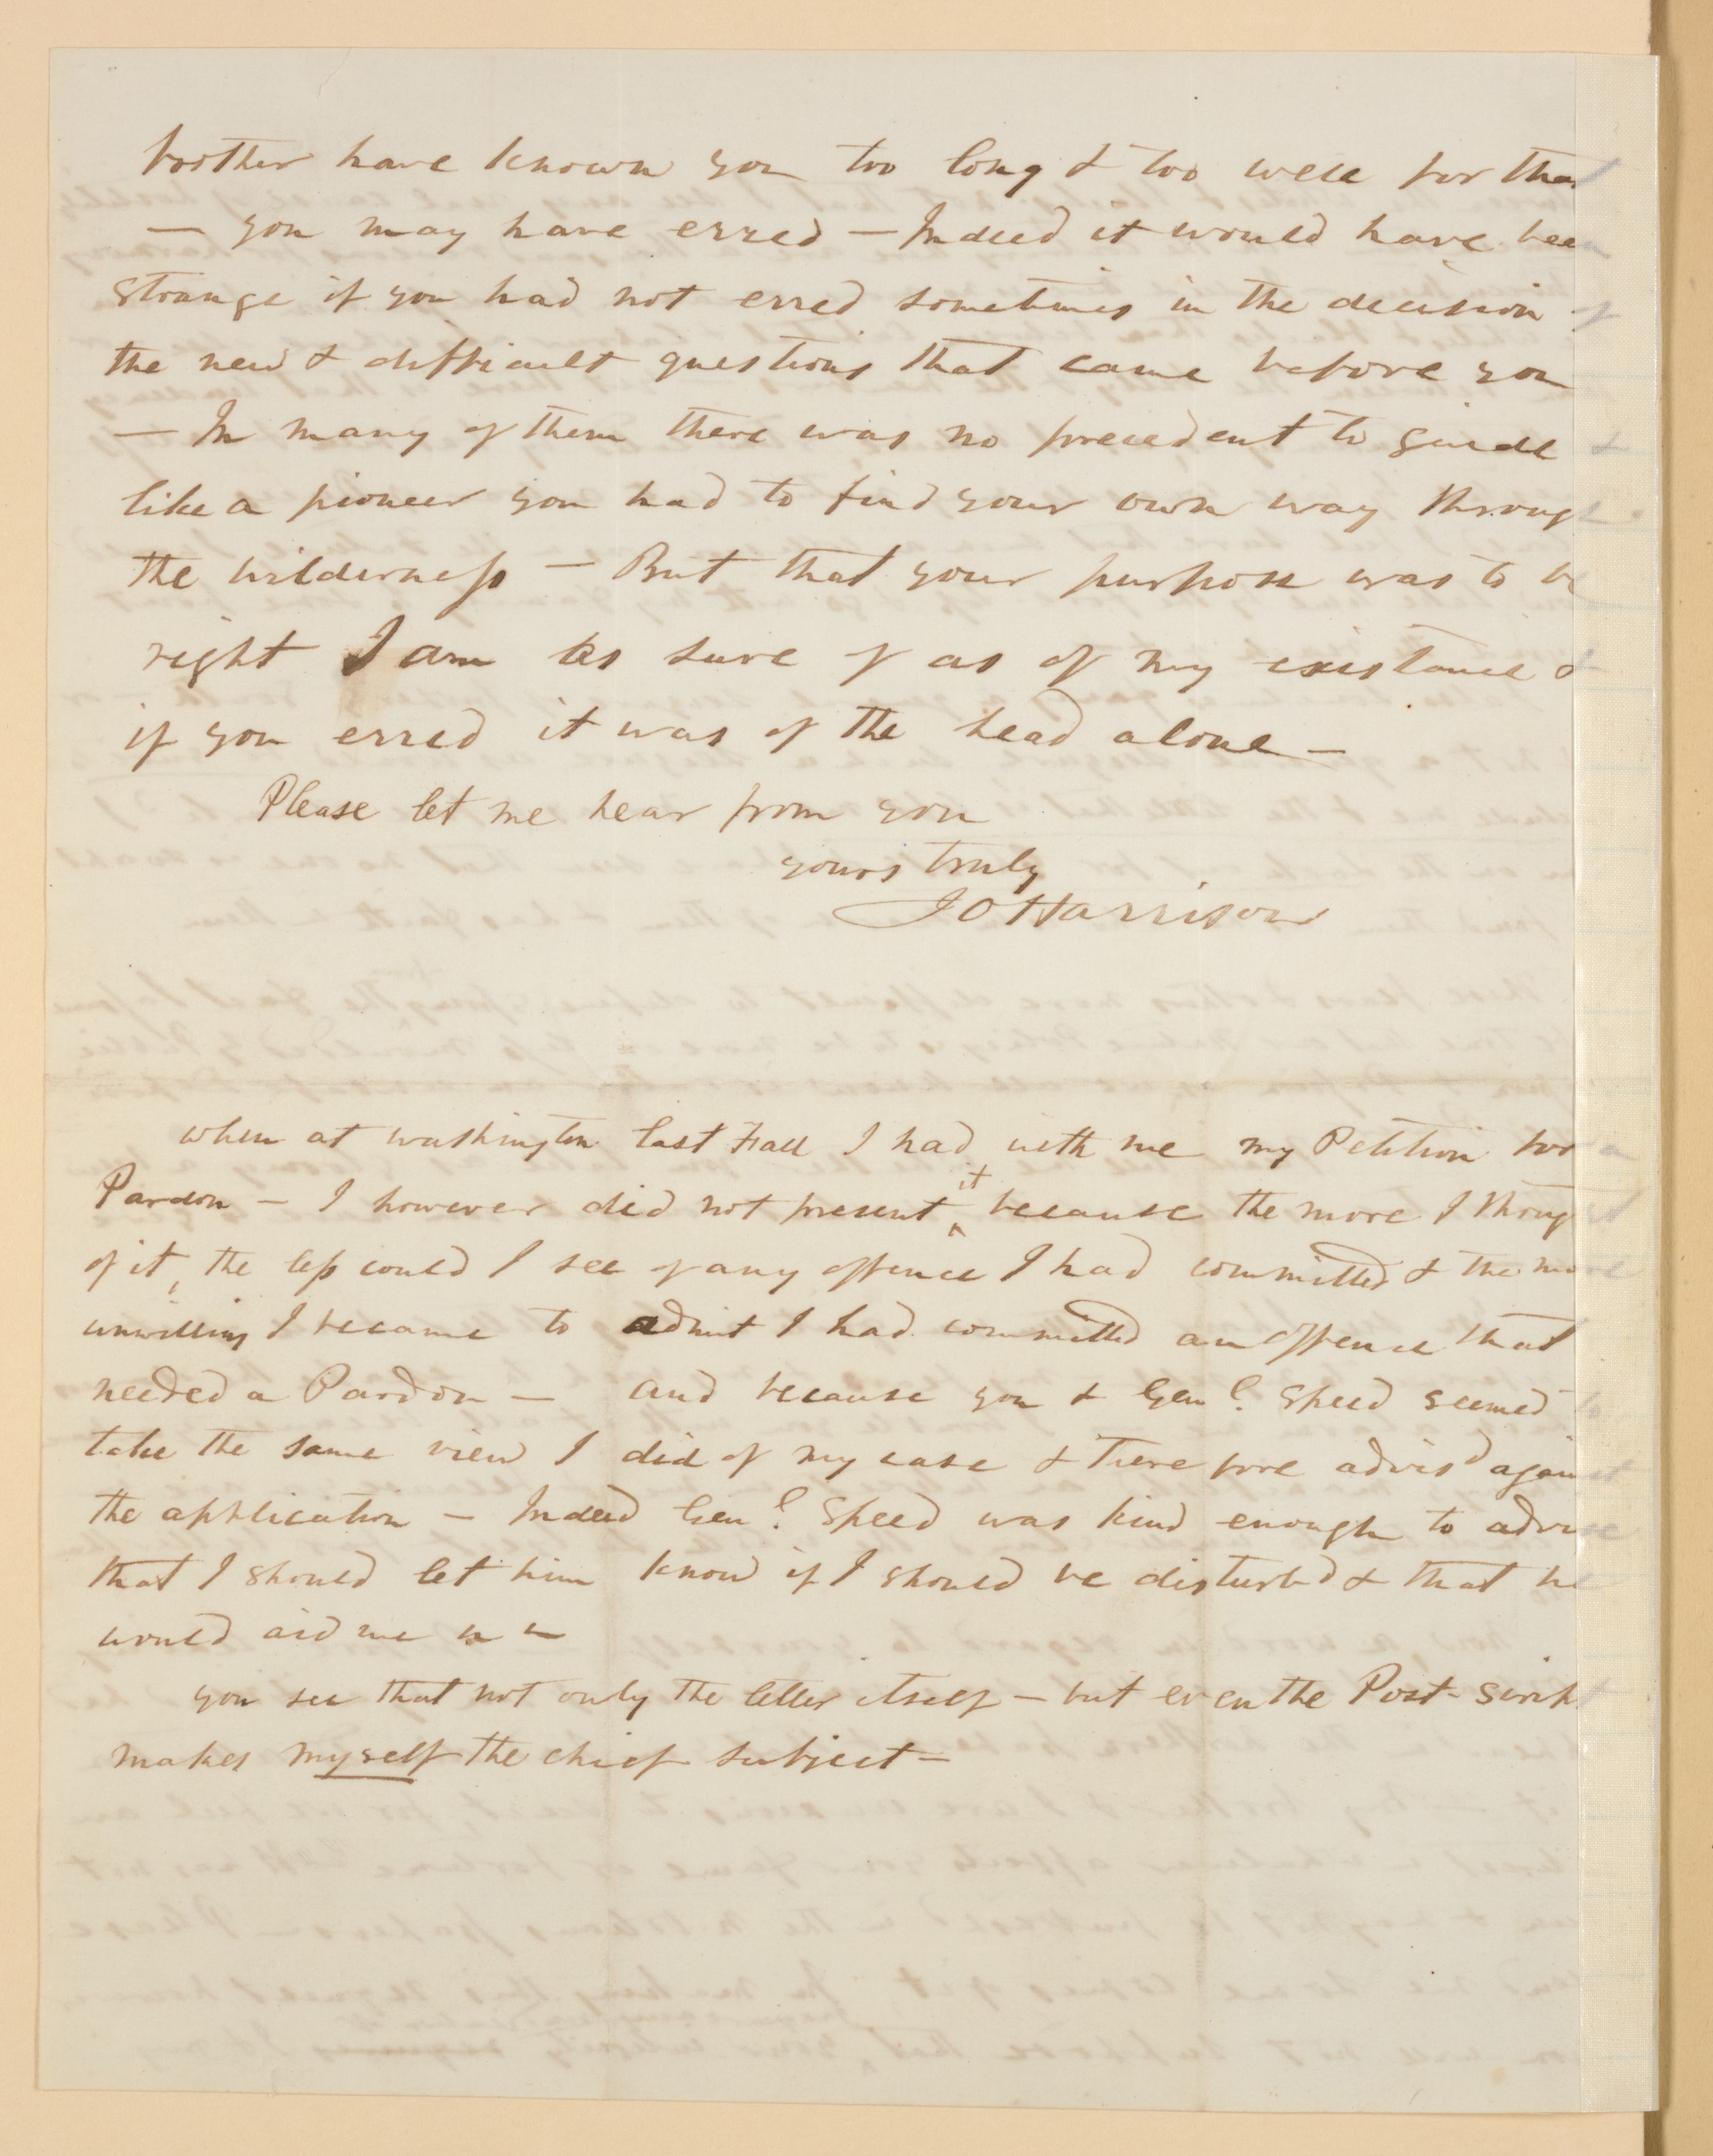 brother have known you too long & too well for that
— you may have erred — Indeed it would have been
strange if you had not erred sometimes in the decision of
the new & difficult questions that came before you
— In many of them there was no precedent to guide &
like a pioneer you had to find your own way through
the wilderness — But that your purpose was to be
right I am as sure of as of my existance &
if you erred it was of the head alone —
Please let me hear from you
yours truly
J O Harrison
when at washington last Fall I had with me my Petition for a
Pardon — I however did not present it because the more I thought
of it, the less could I see of any offence I had committed & the more
unwilling I became to admit I had committed an offence that
needed a Pardon — and because you & Genl. Speed seemed to
take the same view I did of my case & therefore advisd against
the application — Indeed Genl. Speed was kind enough to advise
that I should let him know if I should be disturbd & that he
would aid me
you see that not only the letter itself — but even the Post-Script
makes myself the chief subject —